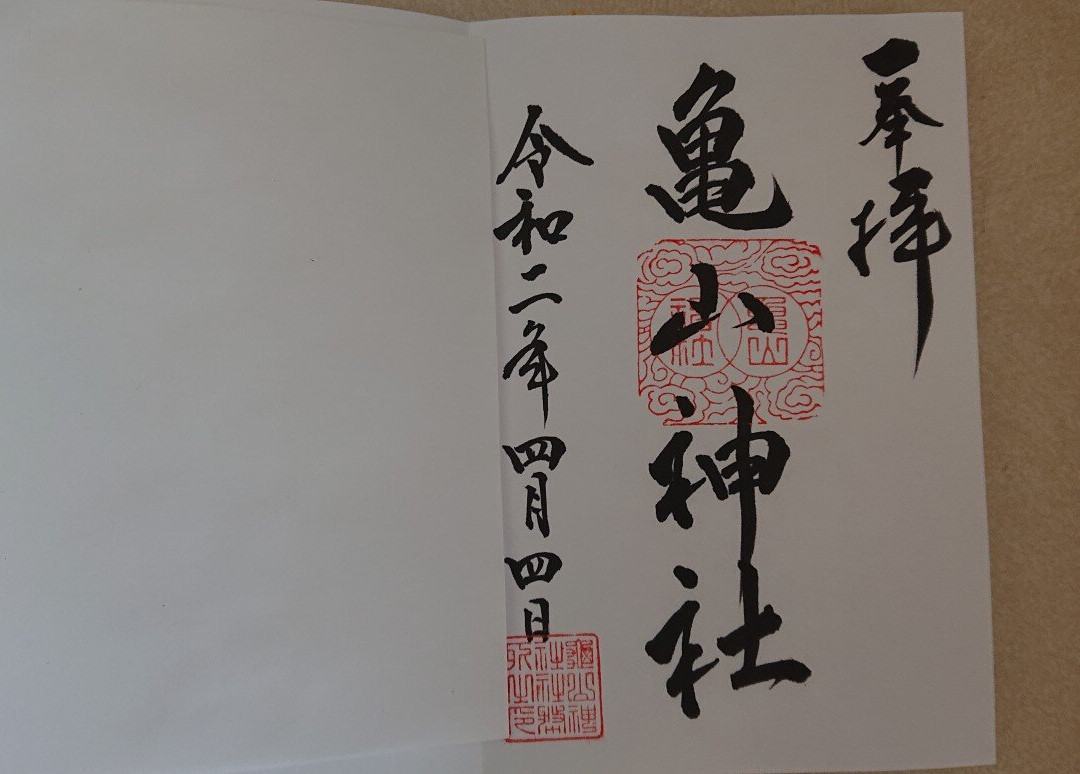 奉拝
亀山神社
令和二年四月四日
龜山神社社務所之印